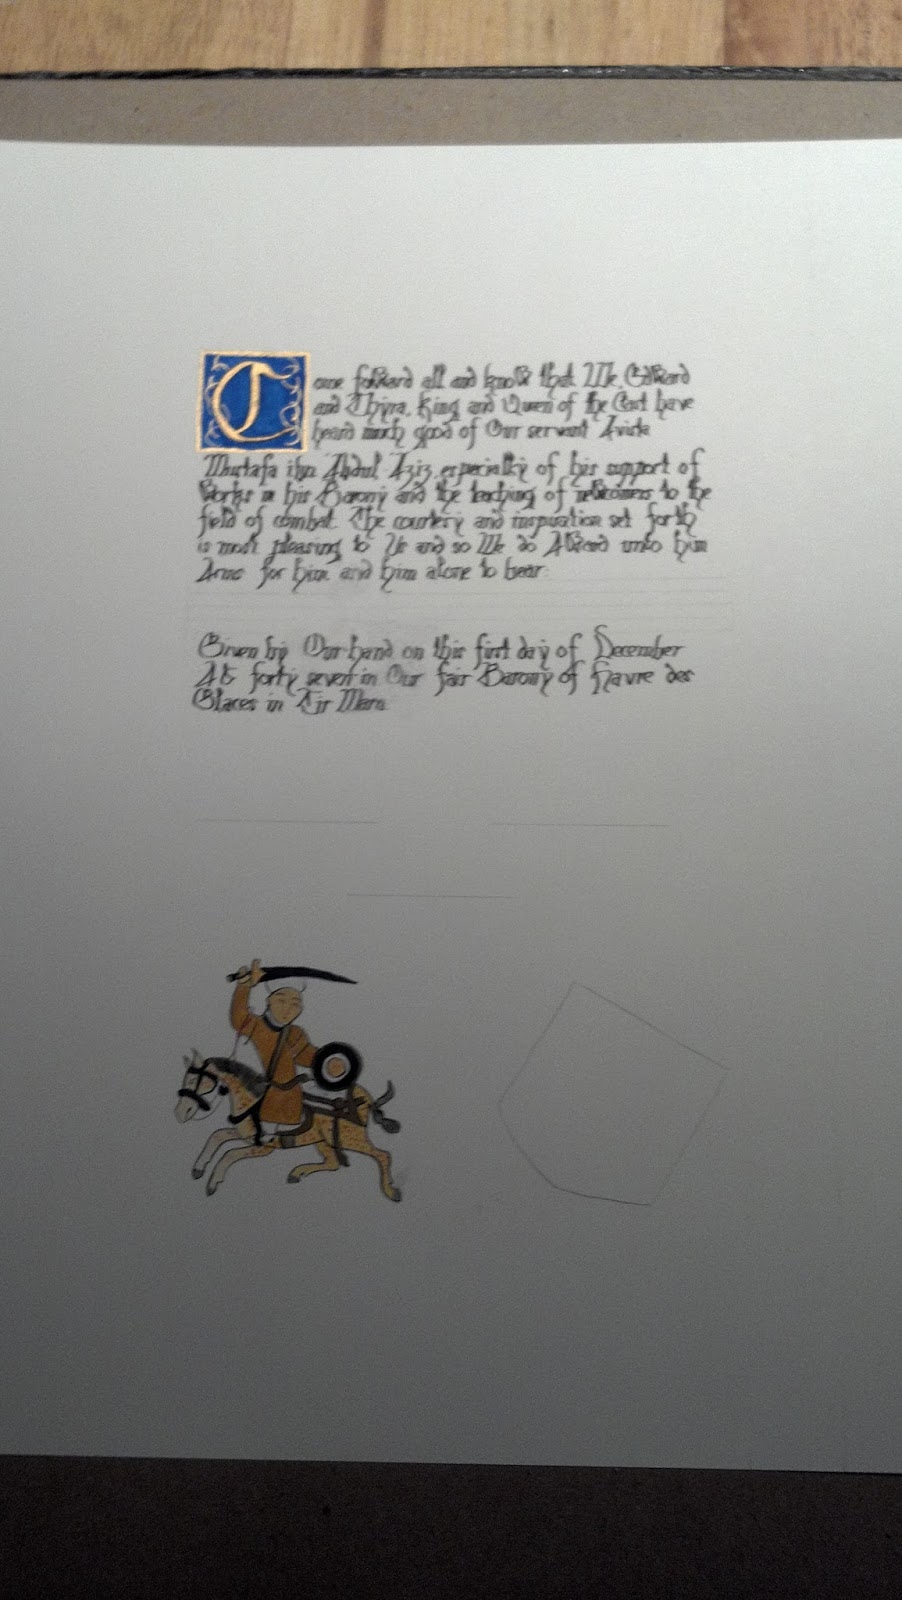 Come forward all and know that We, Edward
and Thyra, King and Queen of the East have
heard much good of Our servant
Mustafa ibn Abdul Aziz, especially of his support of
Works in his Barony and the teaching of newcomers to the
field of combat. The courtesy and inspiration set forth
is most pleasing to Us and so We do Award unto him
Arms for him and him alone to bear:
Given by Our hand on this first day of December
AS forty seven in Our fair Barony of Havre des
Glaces in Tir Mara